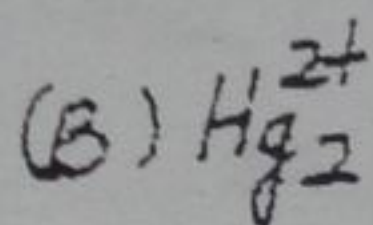 (B) Hg₂²⁺